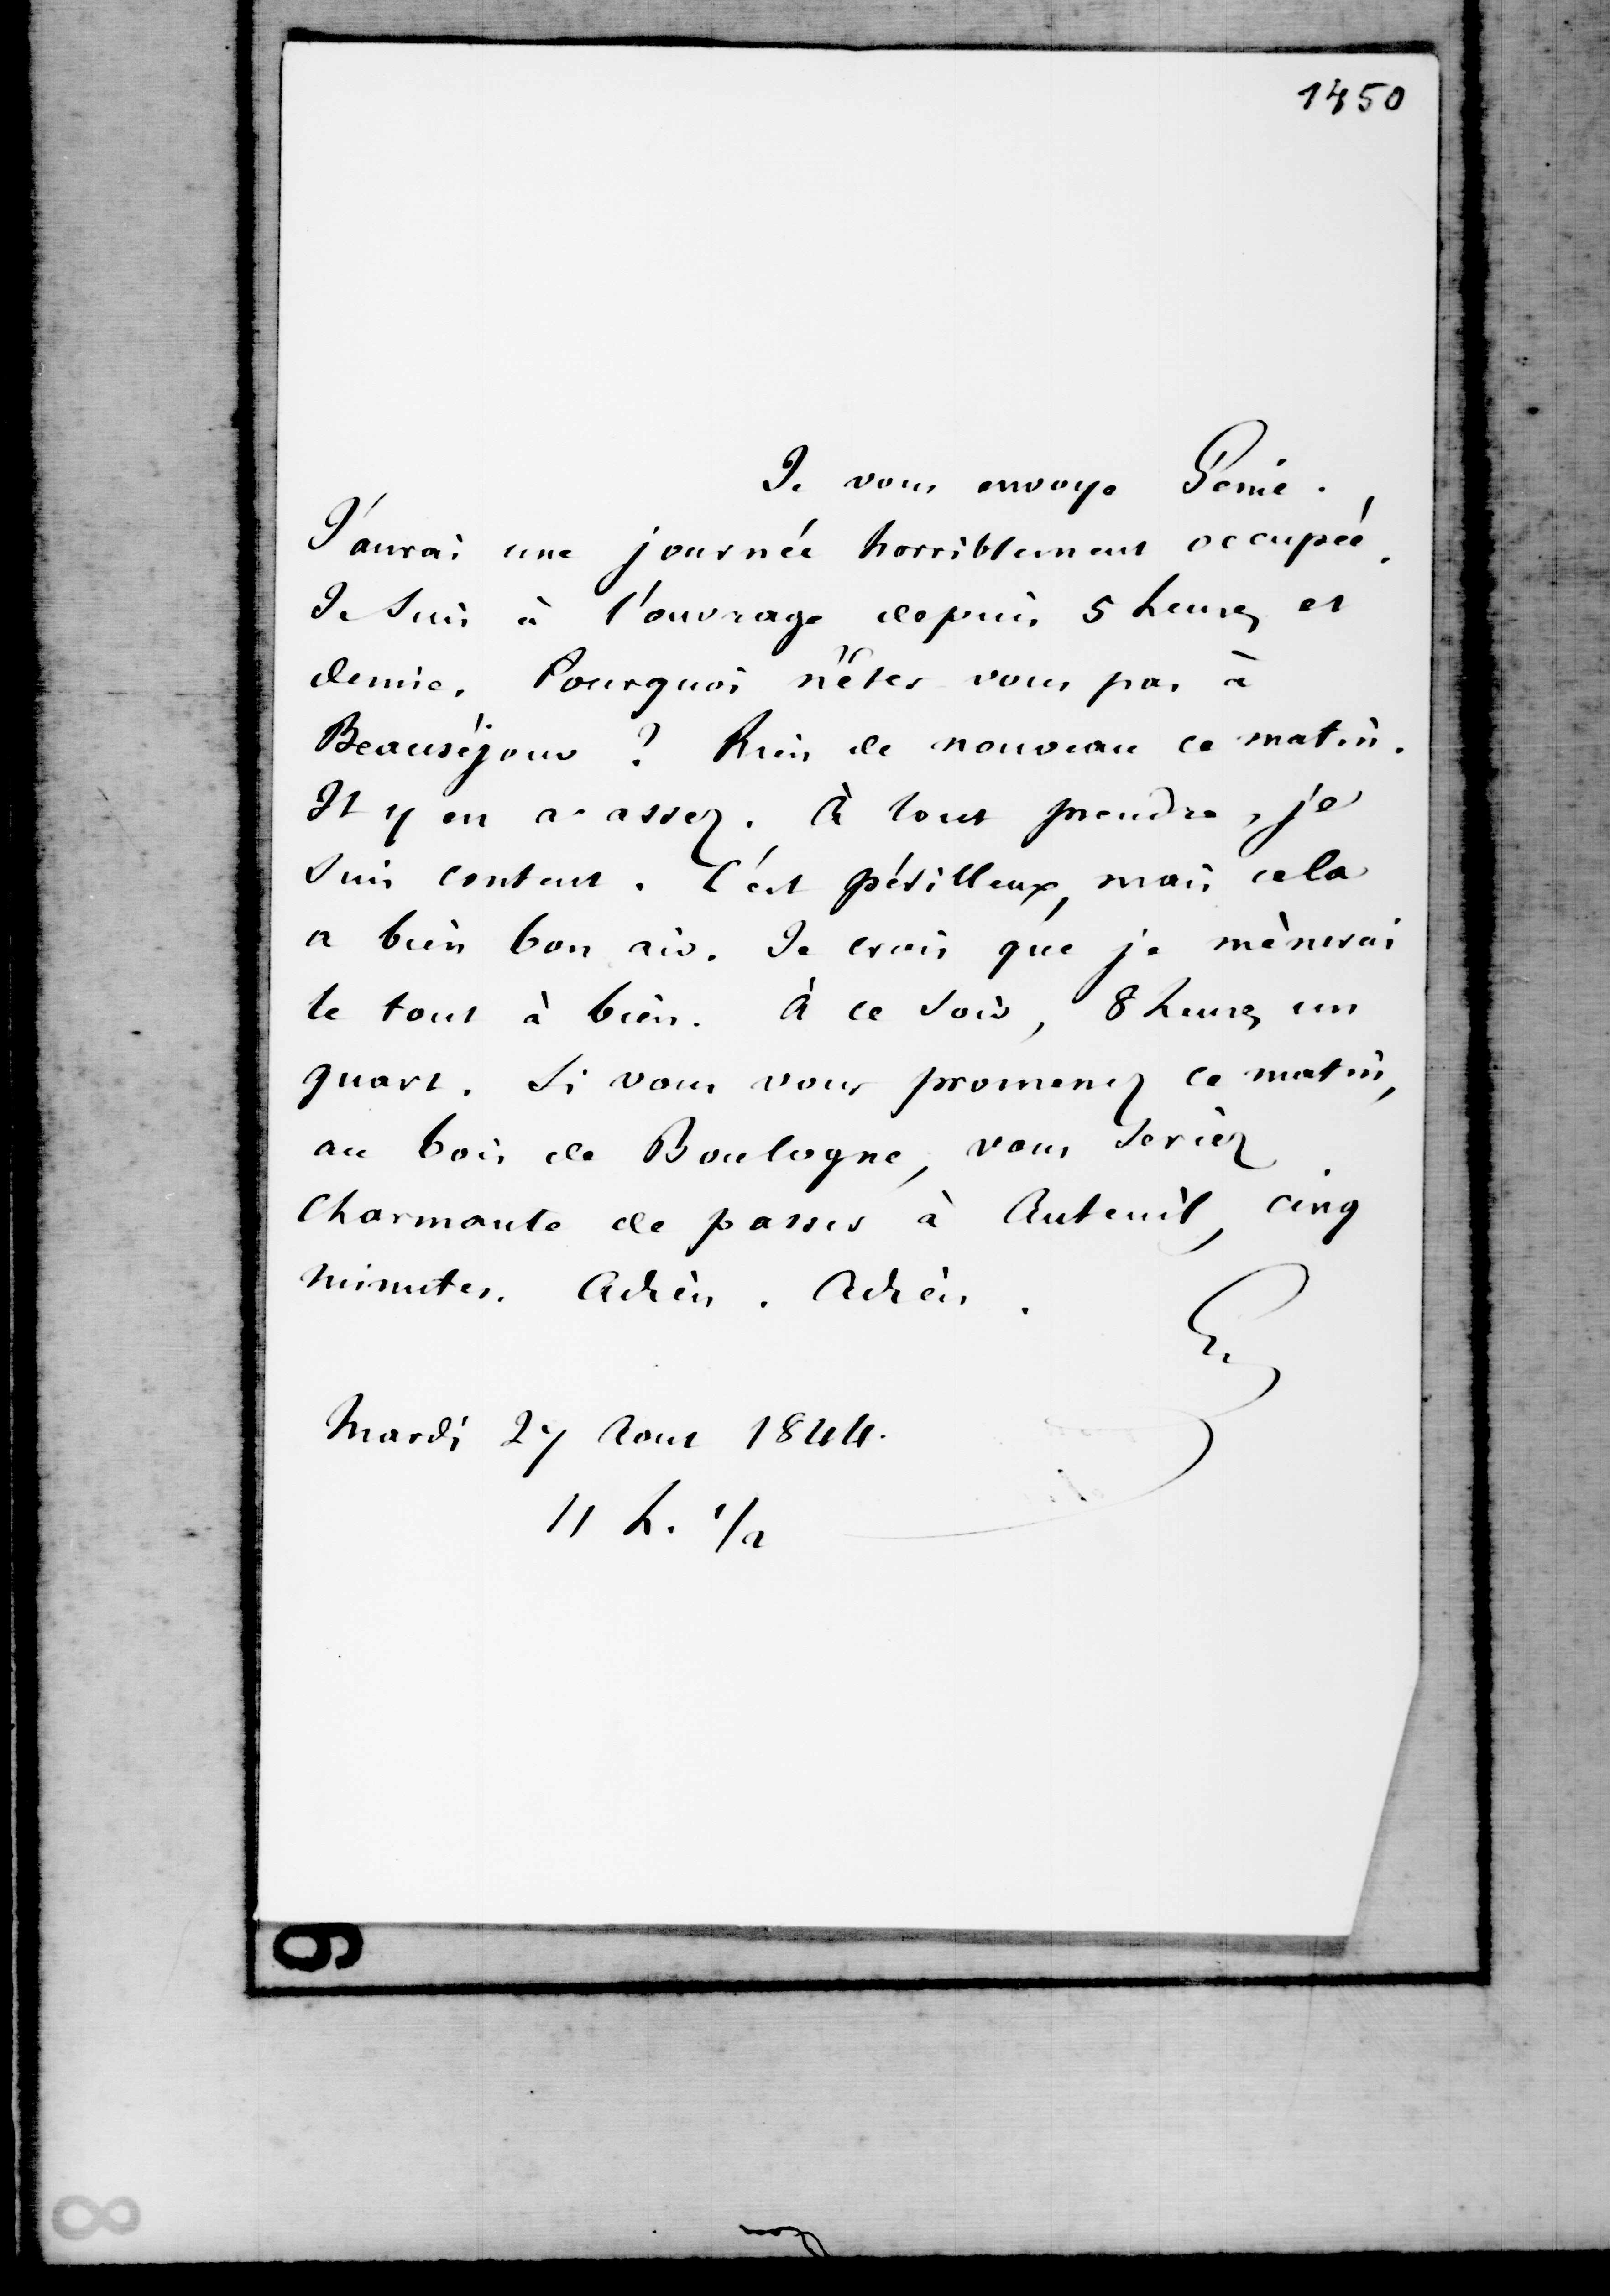 1450
Je vous envoye Génie.
J'aurai une journée horriblement occupée.
Je suis à l'ouvrage depuis 5 heures et
demie. Pourquoi n'êtes vous pas à
Beauséjour ? Rien de nouveau ce matin.
Il y en a assez. À tout prendre, je
suis content. C'est périlleux, mais cela
a bien bon air. Je crois que je mènerai
le tout à bien. À ce soir, 8 heures un
quart. Si vous vous promenez ce matin,
au bois de Boulogne, vous seriez
charmante de passer à Auteuil, cinq
minutes. Adieu. Adieu.
G
Mardi 27 Aout 1844.
11 h. 1/2
9
8